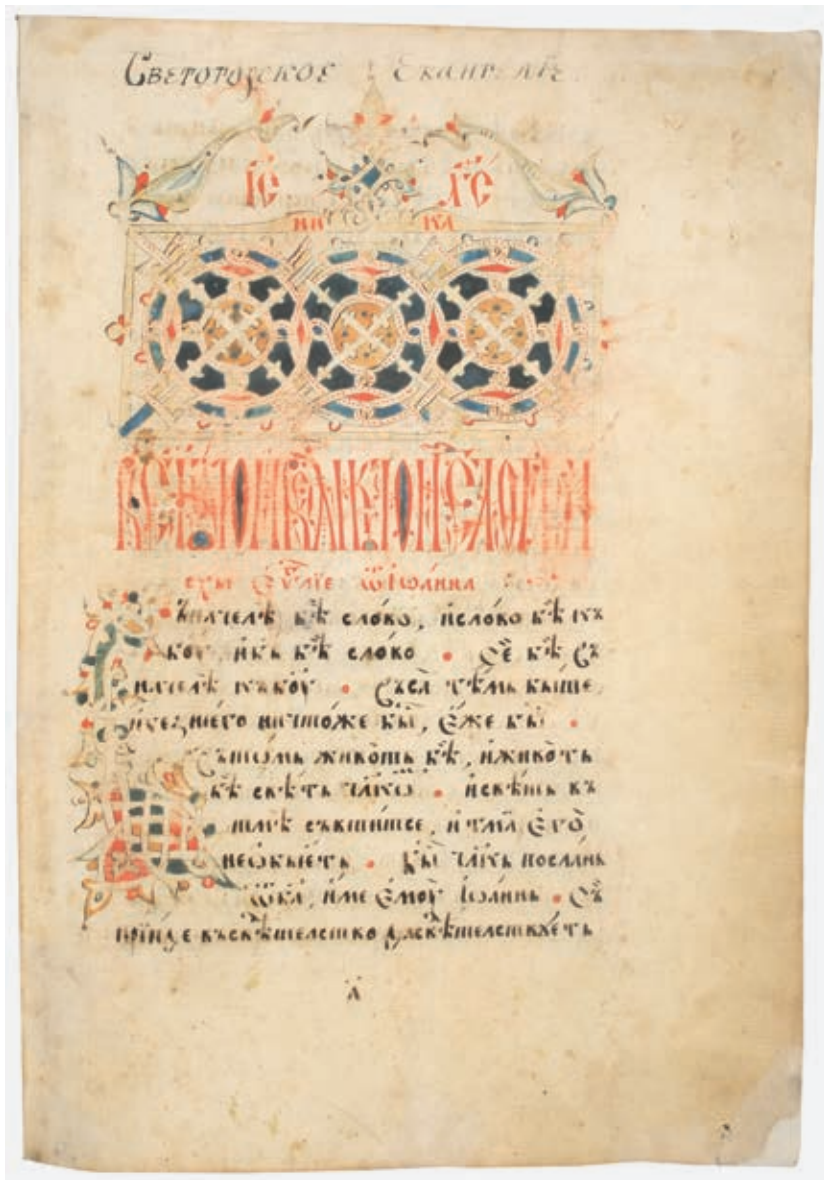 Светогорское Евангелїе
ІС ХС
НИ КА
схы еѵⷢ҇лїе ѿ іѡанна
ъ началѣ бѣ слово, и слово бѣ къ
боу, и бь бѣ слово . Се бѣ въ
началѣ къ боу . Въса тѣмь быше,
и без него ничтоже бы, еже бы .
Въ томь животь бѣ, и животь
бѣ свѣть чл҃кѡⷨ . и свѣть въ
тмѣ свѣтитсе, и тма его
не ѡбьеть . Бы чл҃кь послань
ѿ ба, име емоу Іѡаннь . Съ
прїиде въ свѣтелство да свѣтелствꙋеть
а҃